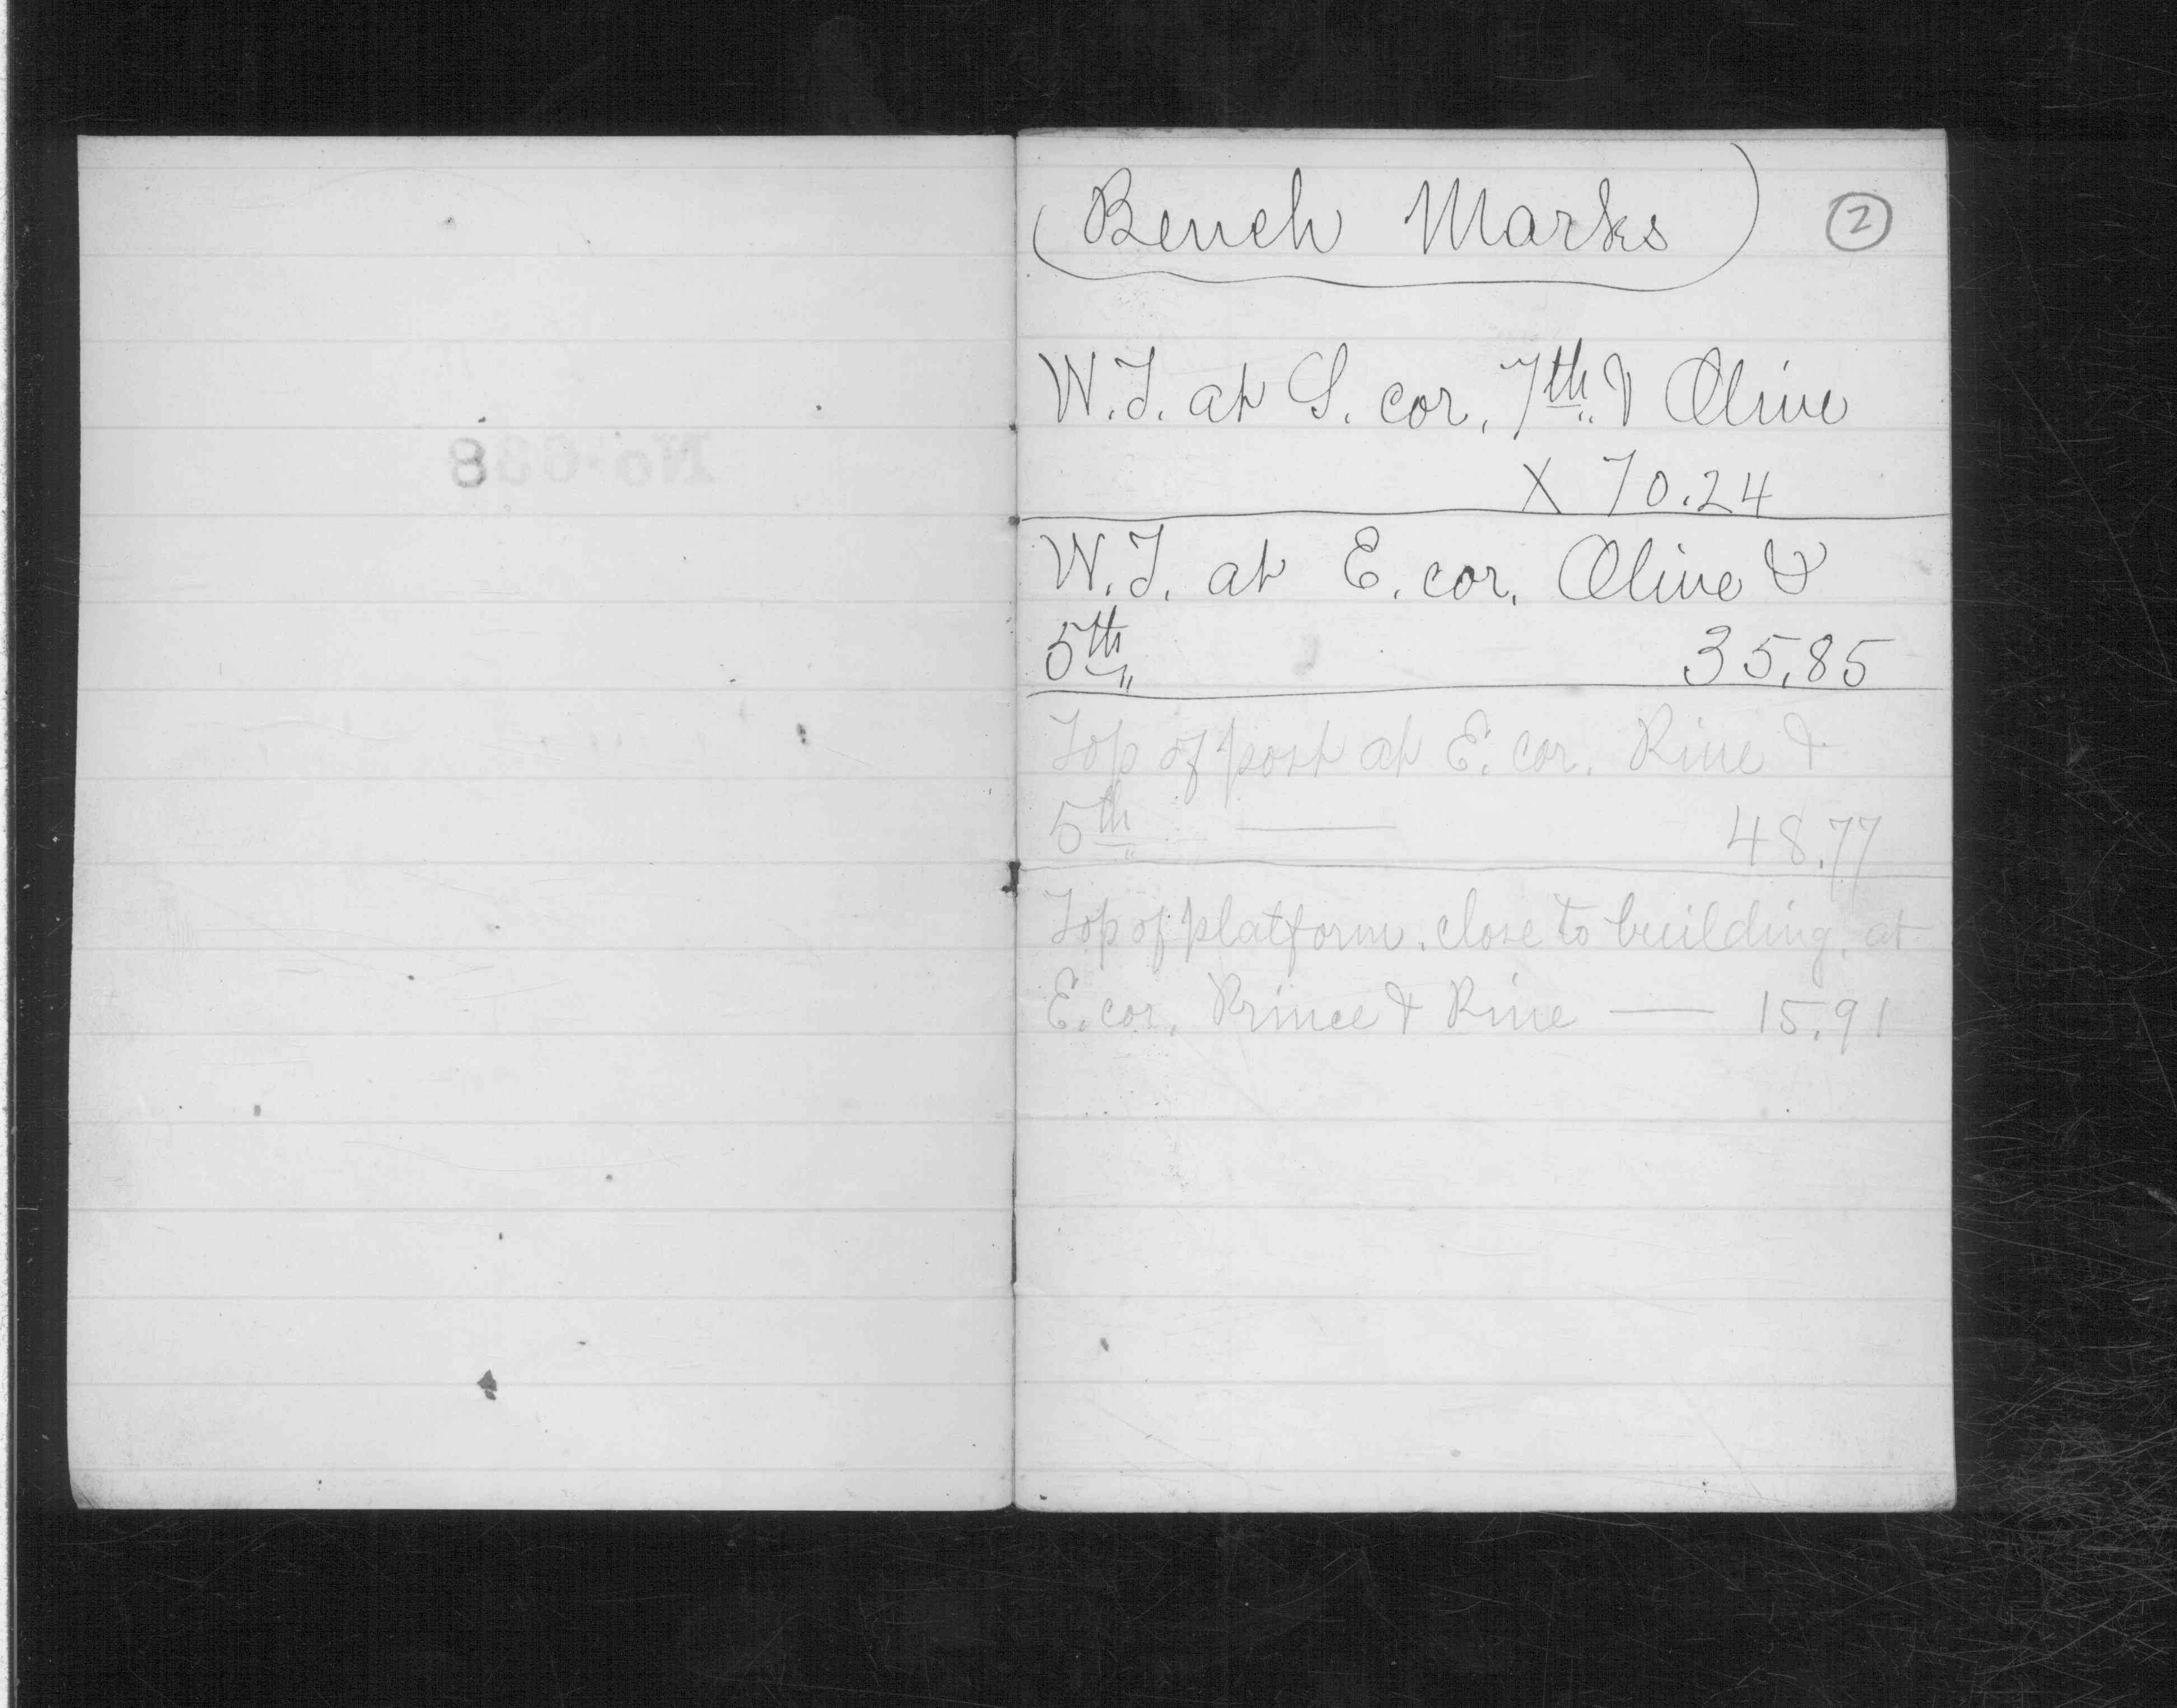 No. 638
(Bench Marks)
2
W.T. at S. cor. 7th & Olive
X 70.24
W.T. at E. cor. Olive &
5th 35.85
Top of post at E. cor. Pine &
5th — 48.77
Top of platform, close to building, at
E. cor. Prince & Pine — 15.91